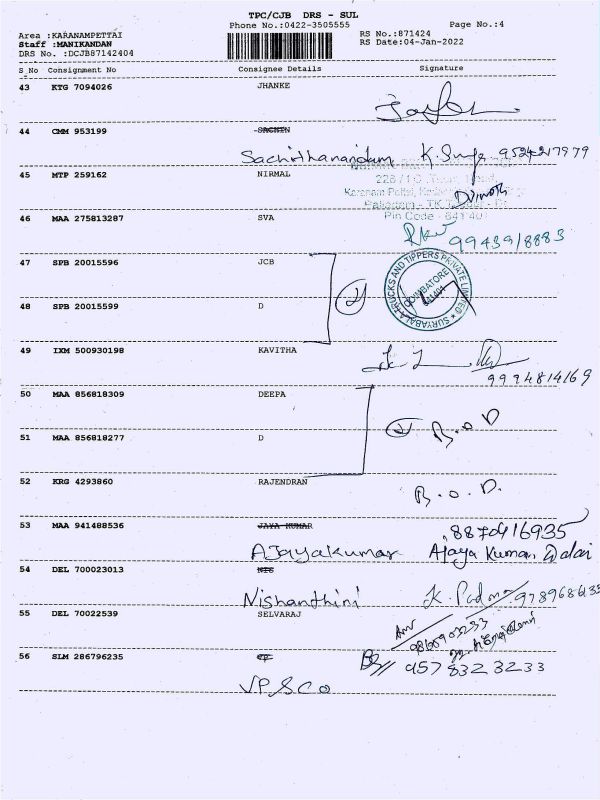 TPC/CJB DRS - SUL
Phone No.:0422-3505555 Page No.:4
Area :KARANAMPETTAI RS No.:871424
Staff :MANIKANDAN RS Date:04-Jan-2022
DRS No. :DCJB87142404
S_No Consignment No Consignee Details Signature
43 KTG 7094026 JHANKE
44 CMM 953199 SACHIN
Sachithanandam K. 9524217979
45 MTP 259162 NIRMAL
46 MAA 275813287 SVA
Pin Code - 641 401
9943918883
47 SPB 20015596 JCB
SURYABALA TRUCKS AND TIPPERS PRIVATE LIMITED
COIMBATORE
641401
48 SPB 20015599 D
49 IXM 500930198 KAVITHA
9994814169
50 MAA 856818309 DEEPA
51 MAA 856818277 D
B.O.D
52 KRG 4293860 RAJENDRAN
B.O.D.
53 MAA 941488536 JAYA KUMAR
8870416935
AJayakumar Ajaya Kumar Dalai
54 DEL 700023013 NIS
Nishanthini K. Padma 9789686135
55 DEL 70022539 SELVARAJ
56 SLM 286796235
9578323233
VPSCo